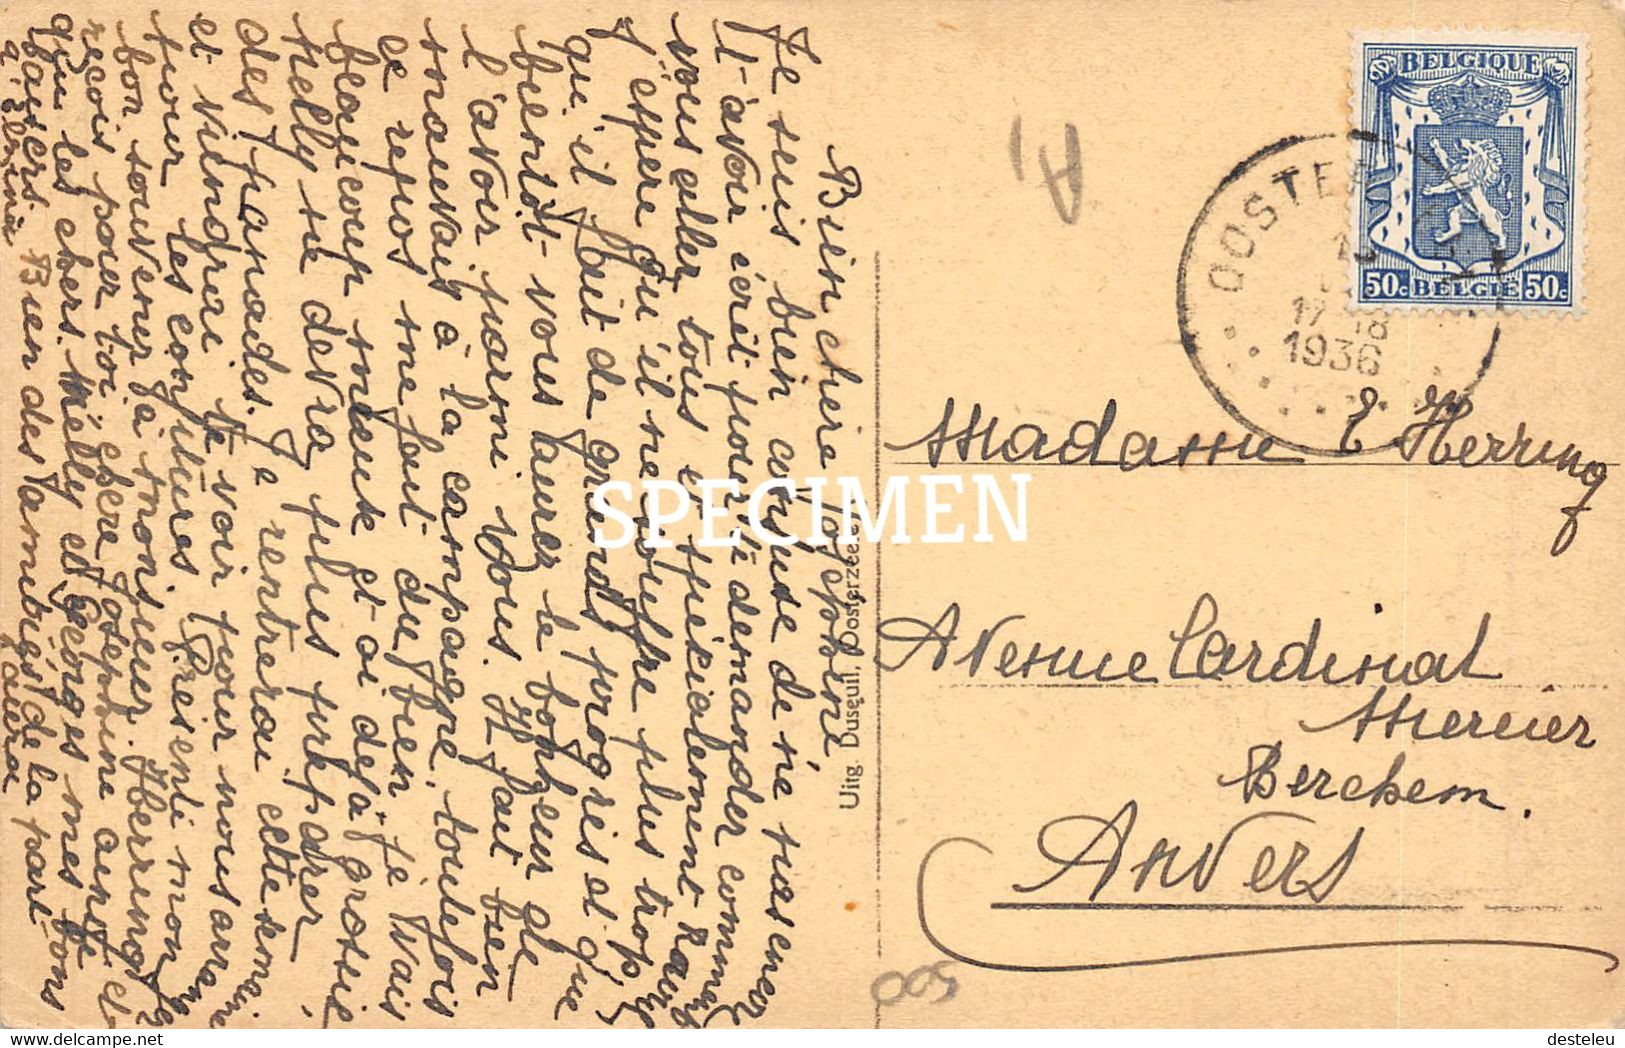 Bien chère Joséphine,
Je suis bien confuse de ne pas encore
t'avoir écrit pour te demander comment
vous aller tous et spécialement
J'espère qu'il ne souffre plus trop,
qu'il fait de grands progrès et que
bientôt vous aurez le bonheur de
l'avoir parmi vous. Il fait bien
mauvais à la campagne, toutefois
le repos me fait du bien, je vais
beaucoup mieux et ai déjà grossie
Nelly ne devra plus préparer
des panades. Je rentrerai cette semaine
et viendrai te voir pour nous arranger
pour les confitures. Présente mon
bon souvenir à monsieur Herring
reçois pour toi, chère Joséphine ainsi
que les chers Nelly et Georges mes
bons baisers. Bien des amitiés de la part
d'Elvire
Laura
Uitg. Duseuil, Oosterzeele
A1
BELGIQUE
50c BELGIË 50c
OOSTERZELE
17-18
1936
Madame E Herring
Avenue Cardinal
Mercier
Berchem.
Anvers
500
SPECIMEN
delcampe.net
desteleu